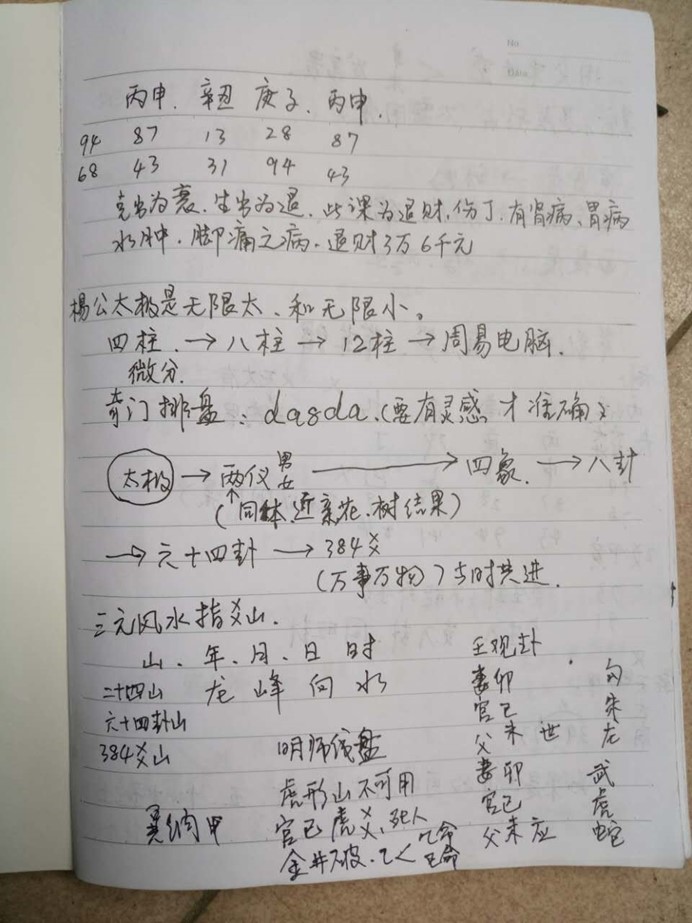 丙申、辛丑 庚子、丙申、
94 87 13 28 87
68 43 31 94 43
克出为衰、生出为退、此课为退财、伤丁、有肾病、胃病
水肿、脚痛之病、退财3万6千元
楊公太极是无限大、和无限小。
四柱、→八柱→12柱→周易电脑.
微分.
奇门排盘:dasda.(要有灵感才准确)
太极→两仪 男女→四象→八卦
(同体、近亲花、树结果)
→六十四卦→384爻
(万事万物)与时共进.
三元风水指爻山.
山、年、月、日 时
二十四山 龙 峰 向 水
六十四卦山
384爻山 明师线盘
虎形山不可用
巽纳甲 官巳虎爻、死人
金井破、亡く 亡命
壬观卦
妻卯 勾
官巳 朱
父未 世 龙
妻卯 武
官巳 虎
父未应 蛇